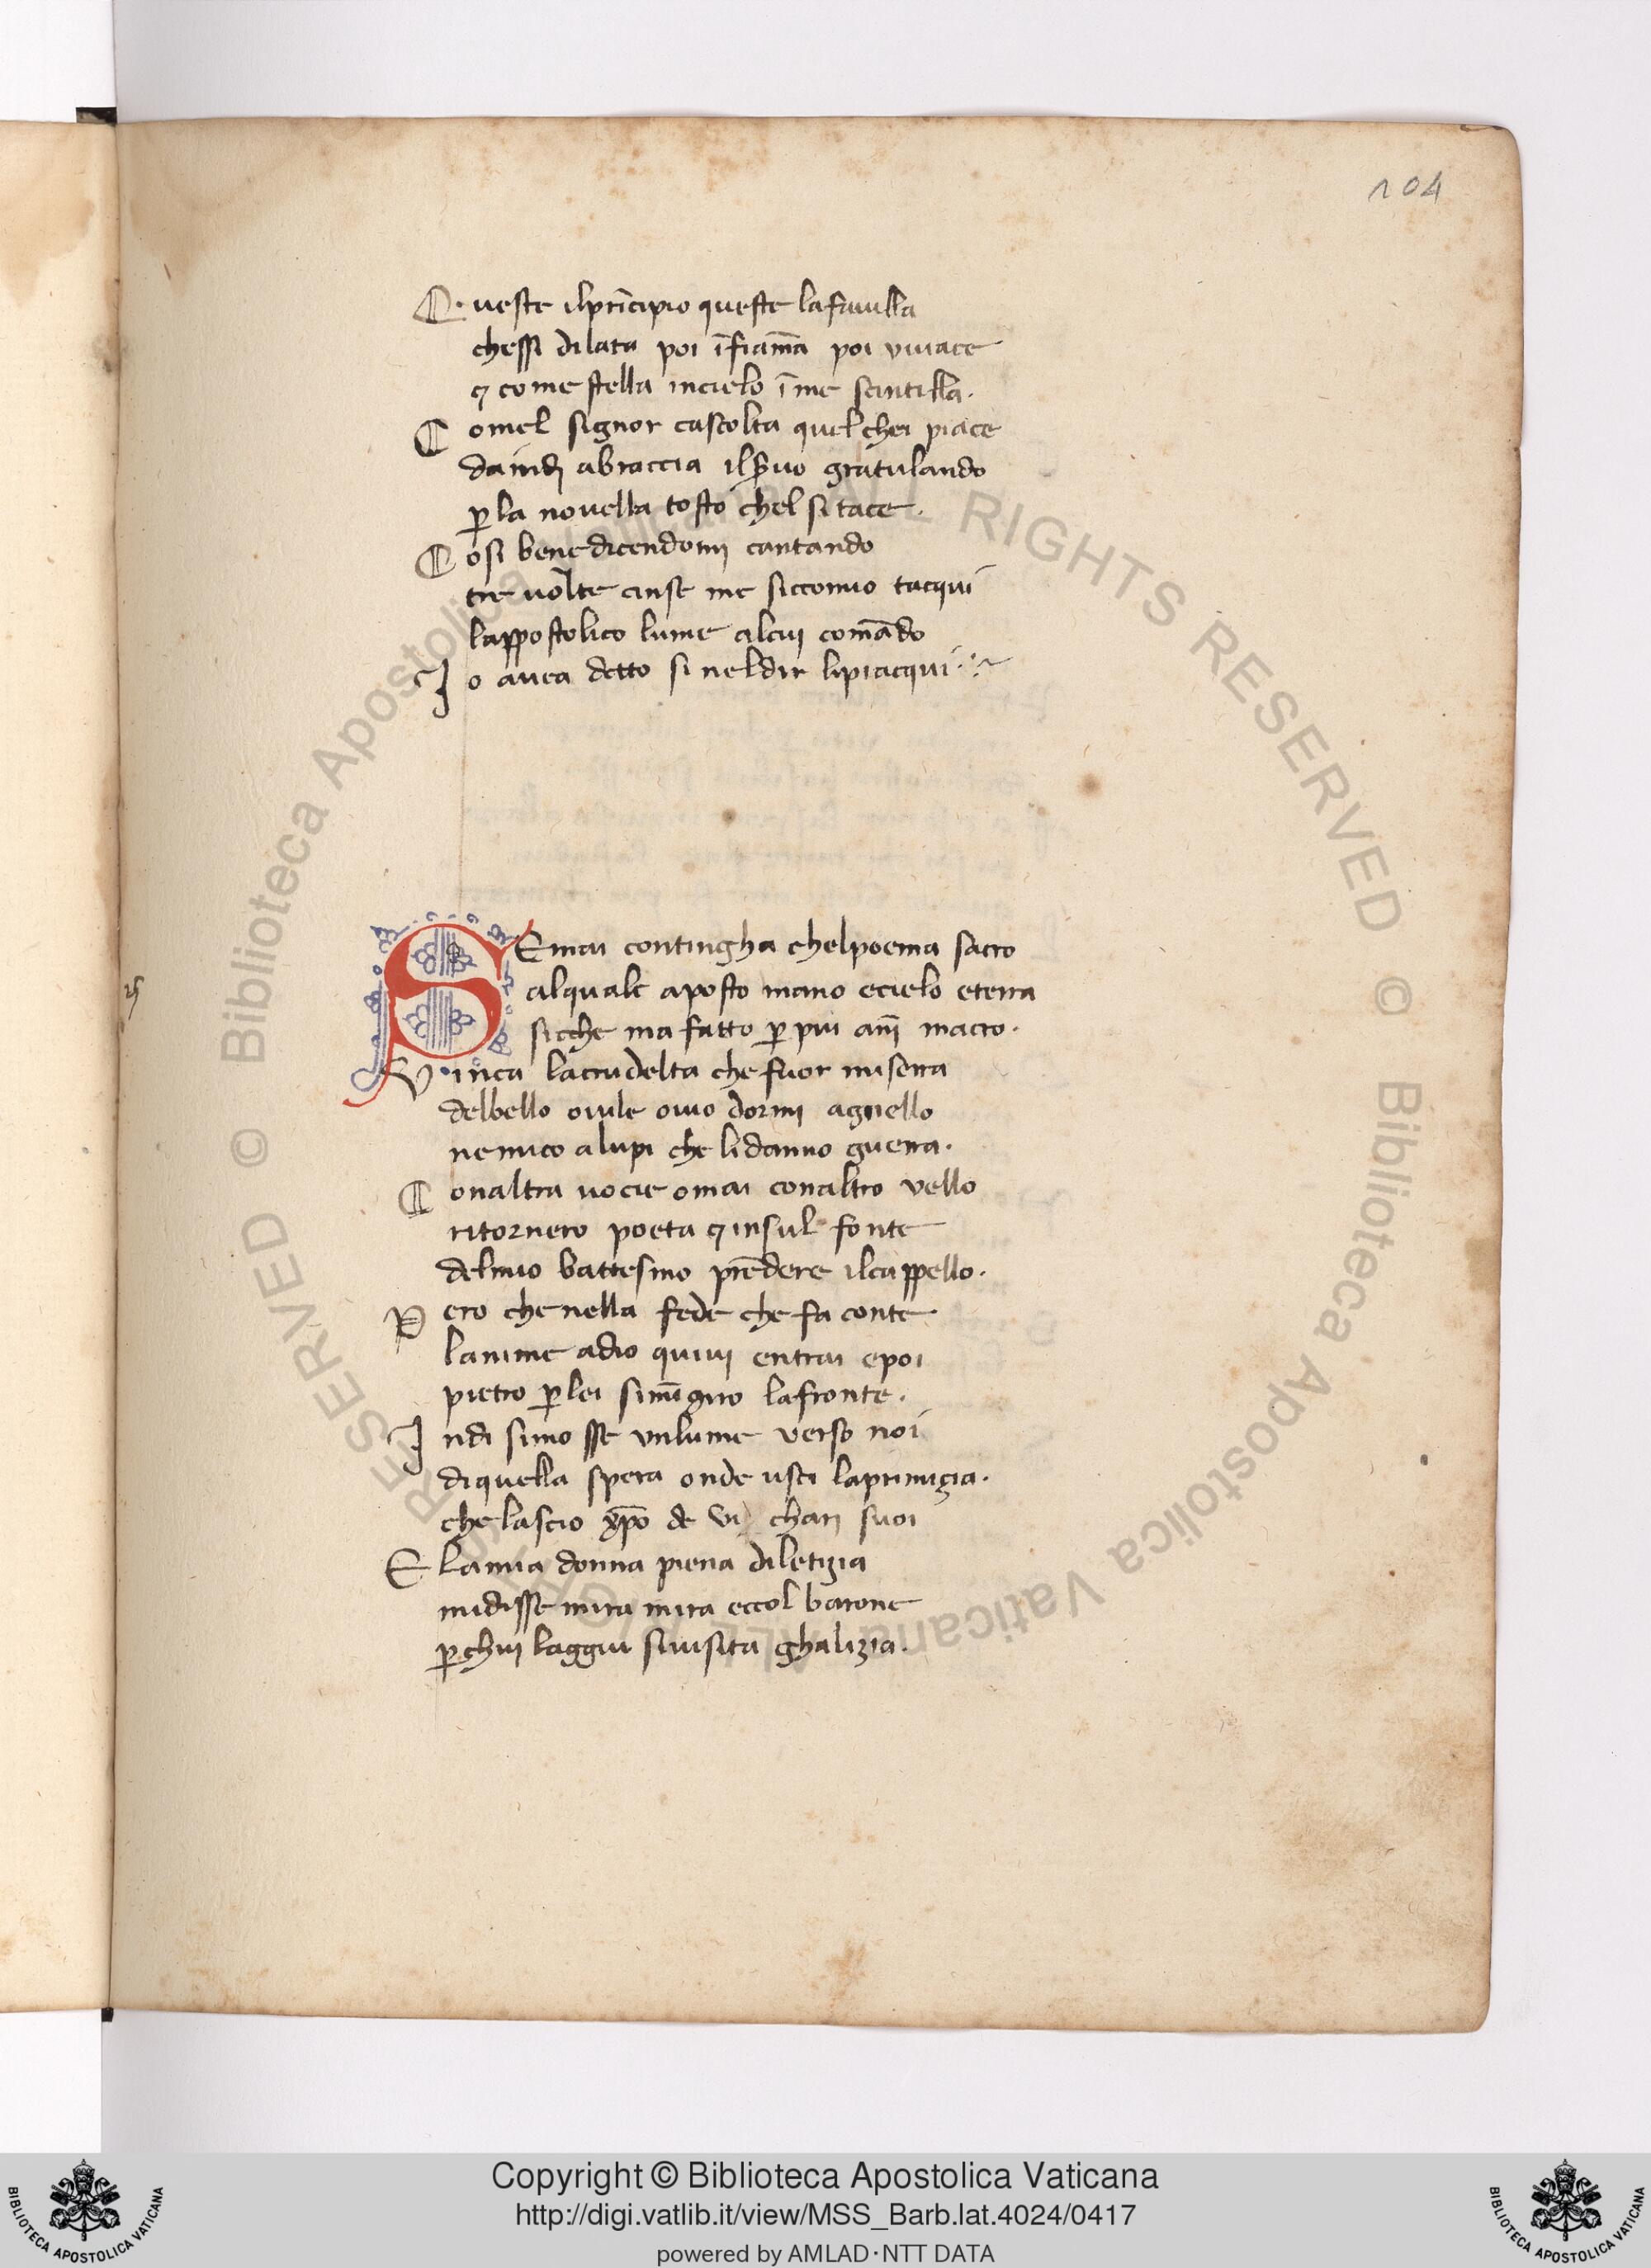 104
Queste ilprīcipio queste lafauilla
chessi dilata poi īfiāma poi viuace
⁊ come stella incielo ī me scintilla.
Comel signor cascolta quel chei piace
daindi abraccia ilsuo gratulando
ꝑ la nouella tosto chel si tace.
Cosi benedicendomi cantando
tre uolte cinse me siccomio tacqui
lappostolico lume alcui comādo
Io auea detto si neldir lipiacqui
SEmai contingha chelpoema sacro
alquale aposto mano ecielo eterra
sicche ma fatto ꝑ piu anī macro.
Vinca lacrudelta che fuor miserra
delbello ouile ouio dormi agnello
nemico alupi che lidanno guerra.
Conaltra uocie omai conaltro vello
ritornero poeta ⁊ insul fonte
delmio battesmo prēdere ilcappello.
Pero che nella fede che fa conte
lanime adio quiui entrai epoi
pietro ꝑ lei simī giro lafronte.
Indi simosse vnlume verso noi
diquella spera onde usci laprimizia.
che lascio xp̄o de vi chari suoi
E lamia donna piena diletizia
midisse mira mira eccol barone
ꝑ chui laggiu siuisita ghalizia.
© Biblioteca Apostolica Vaticana ALL RIGHTS RESERVED
© Biblioteca Apostolica Vaticana ALL RIGHTS RESERVED
Copyright © Biblioteca Apostolica Vaticana
http://digi.vatlib.it/view/MSS_Barb.lat.4024/0417
powered by AMLAD·NTT DATA
BIBLIOTECA APOSTOLICA VATICANA
BIBLIOTECA APOSTOLICA VATICANA